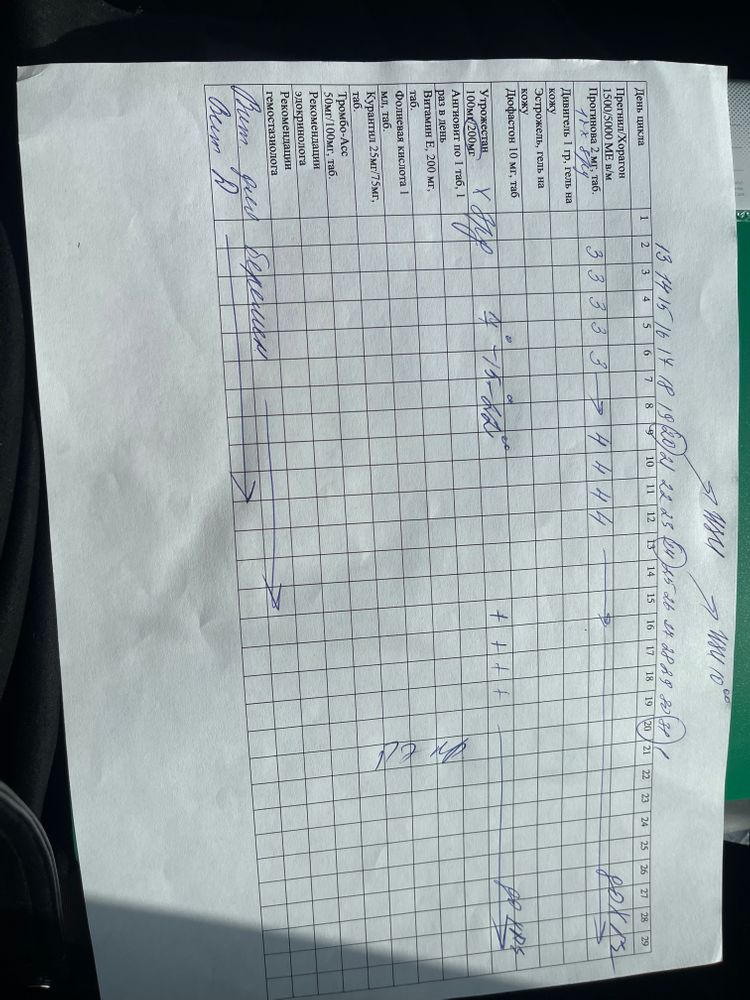 УЗИ УЗИ 10⁰⁰
13 14 15 16 17 18 19 20 21 22 23 24 25 26 27 28 29 30 31 1
День цикла 1 2 3 4 5 6 7 8 9 10 11 12 13 14 15 16 17 18 19 20 21 22 23 24 25 26 27 28 29
Прегнил/Хорагон
1500/5000 МЕ в/м
Прогинова 2 мг, таб. 3 3 3 3 3 → 4 4 4 4 → до ХГЧ
Дивигель 1 гр, гель на
кожу
Эстрожель, гель на
кожу
Дюфастон 10 мг, таб
Утрожестан
100мг/200мг + + + +
7⁰⁰ - 15⁰⁰ - 22⁰⁰
Ангиовит по 1 таб, 1
раз в день
Витамин Е, 200 мг,
таб.
Фолиевая кислота 1
мл, таб.
Курантил 25мг/75мг,
таб.
Тромбо-Асс
50мг/100мг, таб
Рекомендации
эдокринолога
Рекомендации
гемостазиолога
Вит для беремен →
Вит Д →